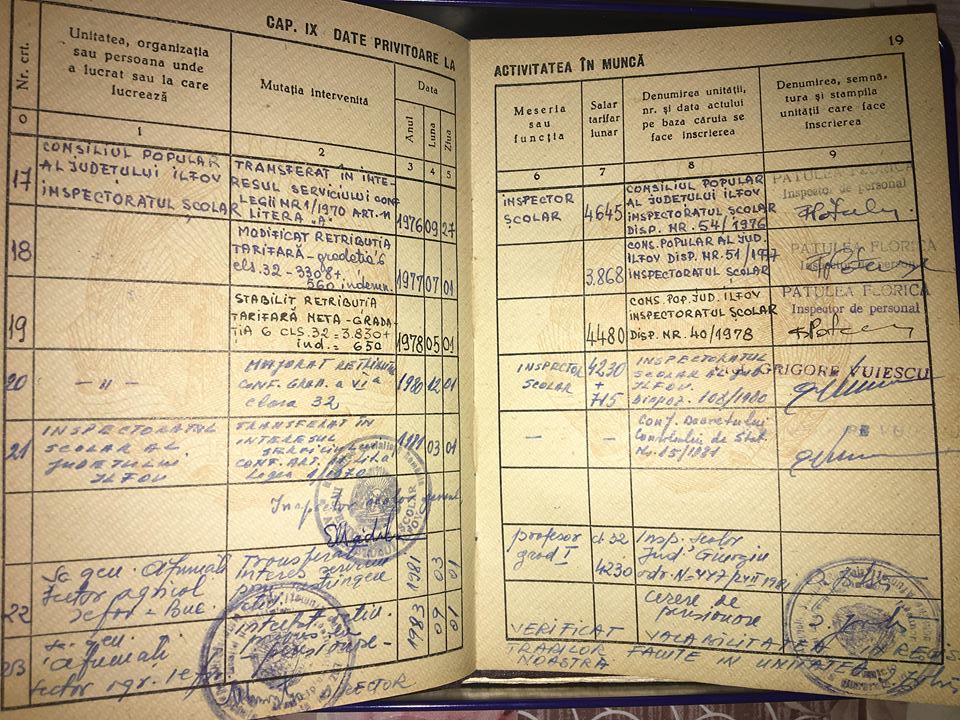 CAP. IX DATE PRIVITOARE LA
Nr. crt.
Unitatea, organizația
sau persoana unde
a lucrat sau la care
lucrează
Mutația intervenită
Data
Anul
Luna
Ziua
0
1
2
3
4
5
17
CONSILIUL POPULAR
AL JUDETULUI ILFOV
INSPECTORATUL ȘCOLAR
TRANSFERAT IN INTE-
RESUL SERVICIULUI CONF
LEGII NR 1/1970 ART. 11
LITERA "A"
1976 09 27
18
— " —
MODIFICAT RETRIBUTIA
TARIFARĂ-gradatia 6
cls. 32 - 3308+
560 indemn.
1977 07 01
19
STABILIT RETRIBUTIA
TARIFARĂ META-GRADA-
TIA 6 CLS. 32 = 3.830+
ind. = 650
1978 05 01
20
— " —
MAJORAT RETRIBUTIA
CONF. GRAD. a VI a
clasa 32
1980 12 01
21
INSPECTORATUL
SCOLAR AL
JUDETULUI
ILFOV
TRANSFERAT IN
INTERESUL
CONF. ART.
Legea 1/1970
1981 03 01
Inspector scolar general
Sc. gen. Afumati
Sector agricol
Ilfov - Buc.
Transferat
interes serviciu
1981 03 01
22
1983 09 01
23
Sc. gen.
Afumati
Sector agr. Ilfov
DIRECTOR
19
ACTIVITATEA ÎN MUNCĂ
Meseria
sau
funcția
Salar
tarifar
lunar
Denumirea unității,
nr. și data actului
pe baza căruia se
face înscrierea
Denumirea, semnă-
tura și ștampila
unității care face
înscrierea
6
7
8
9
INSPECTOR
ȘCOLAR
4645
CONSILIUL POPULAR
AL JUDETULUI ILFOV
INSPECTORATUL ȘCOLAR
DISP. NR. 54/1976
PATULEA FLORICA
Inspector de personal
3.868
CONS. POPULAR AL JUD.
ILFOV DISP. NR. 51/1977
INSPECTORATUL ȘCOLAR
PATULEA FLORICA
Inspector de personal
4480
CONS. POP. JUD. ILFOV
INSPECTORATUL ȘCOLAR
DISP. NR. 40/1978
PATULEA FLORICA
Inspector de personal
INSPECTOR
SCOLAR
4230
+
715
INSPECTORATUL
SCOLAR AL JUD.
ILFOV.
Dispoz. 102/1980
GRIGORE VUIESCU
—
—
Conf. Decretului
Consiliului de Stat
Nr. 15/1981
profesor
grad I
cl 32
4230
Insp. scolar
Jud. Giurgiu
cerere de
pensionare
VERIFICAT VALABILITATEA
NOASTRĂ FACUTE IN UNITATEA